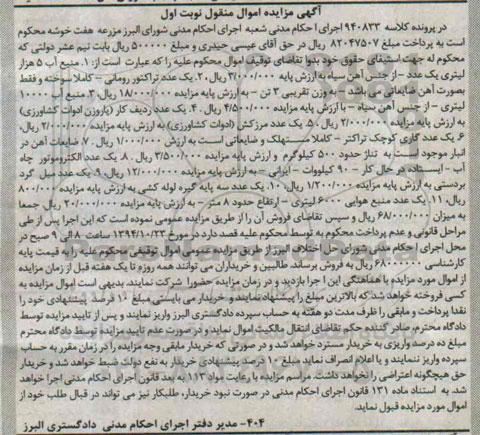 آگهی مزایده اموال منقول نوبت اول
در پرونده کلاسه ۹۴۰۸۳۳ اجرای احکام مدنی شعبه اجرای احکام مدنی شورای البرز مزرعه هفت خوشه محکوم
است به پرداخت مبلغ ۸۲۰۴۷۵۰۷ ریال در حق آقای عیسی حیدری و مبلغ ۵۰۰۰۰۰ ریال بابت نیم عشر دولتی که
محکوم له جهت استیفای حقوق خود بدوا تقاضای توقیف اموال محکوم علیه را که عبارت است از: ۱. منبع آب ۵ هزار
لیتری یک عدد - از جنس آهن سیاه به ارزش پایه ۳/۰۰۰/۰۰۰ ریال ۲. یک عدد تراکتور رومانی - کاملا سوخته و فقط
بصورت آهن ضایعاتی می باشد - به وزن تقریبی ۳ تن - به ارزش پایه ۱۸/۰۰۰/۰۰۰ ریال ۳. منبع آب ۱۰۰۰۰
لیتری - از جنس آهن سیاه - با ارزش پایه مزایده ۴/۵۰۰/۰۰۰ ریال ۴. یک عدد ردیف کار (پاروزن ادوات کشاورزی)
به ارزش پایه مزایده ۲/۰۰۰/۰۰۰ ریال ۵. یک عدد مرزکش (ادوات کشاورزی) به ارزش پایه مزایده ۲/۰۰۰/۰۰۰ ریال،
۶. یک عدد گاری کوچک تراکتور - کاملا مستهلک و ضایعاتی است به ارزش ۱/۰۰۰/۰۰۰ ریال. ۷. ضایعات آهن در
انبار موجود است به تناژ حدود ۵۰۰ کیلوگرم و ارزش پایه مزایده ۳/۵۰۰/۰۰۰ ریال . ۸. یک عدد الکتروموتور چاه
آب - ایستاده در حال کار - ۹۰ کیلووات - ایرانی - به ارزش پایه مزایده ۱۲/۰۰۰/۰۰۰ ریال، ۹. یک عدد مبل گرد
بردستی به ارزش پایه مزایده ۱/۲۰۰/۰۰۰ ریال، ۱۰. یک عدد سه پایه گیره لوله کشی به ارزش پایه مزایده ۸۰۰/۰۰۰
ریال، ۱۱. یک عدد منبع هوایی ۶۰۰۰ لیتری - ارتفاع حدود ۸ متر - به ارزش پایه مزایده ۲۰/۰۰۰/۰۰۰ ریال. جمعا
به میزان ۶۸/۰۰۰/۰۰۰ ریال و سپس تقاضای فروش آن را از طریق مزایده عمومی نموده است که این اجرا پس از طی
مراحل قانونی و عدم پرداخت محکوم به توسط محکوم علیه قصد دارد در مورخ ۱۳۹۴/۱۰/۲۳ ساعت ۸ الی ۹ صبح در
محل اجرای احکام مدنی شورای حل اختلاف البرز از طریق مزایده عمومی اموال توقیفی محکوم علیه را به قیمت پایه
کارشناسی ۶۸۰۰۰۰۰۰ ریال به فروش برساند. طالبین و خریداران می توانند همه روزه تا یک هفته قبل از زمان مزایده
از اموال مورد مزایده با هماهنگی این اجرا بازدید و در زمان مزایده حضورا شرکت نمایند، بدیهی است اموال مزایده به
کسی فروخته خواهد شد که بالاترین مبلغ را پیشنهاد نمایند و خریدار می بایستی مبلغ ۱۰ درصد پیشنهادی خود را
نقدا پرداخت و مابقی را ظرف مدت دو هفته به حساب سپرده دادگستری البرز واریز نمایند و پس از تایید مزایده توسط
دادگاه محترم، صادر کننده حکم تقاضای انتقال مالکیت اموال نماید و درصورت عدم تایید مزایده توسط دادگاه محترم
مبلغ ده درصد واریزی به خریدار مسترد خواهد شد و در صورتی که خریدار مابقی وجه مزایده را در زمان مقرر به حساب
سپرده واریز ننمایند و یا اعلام انصراف نماید مبلغ ۱۰ درصد پیشنهادی خریدار به نفع دولت ضبط خواهد شد و خریدار
حق هیچگونه اعتراضی را نخواهد داشت. مراسم مزایده با رعایت مواد ۱۱۳ به بعد قانون اجرای احکام مدنی اجرا خواهد
شد. به استناد ماده ۱۳۱ قانون اجرای احکام مدنی در صورت نبود خریدار، طلبکار نیز می تواند در قبال طلب خود از
اموال مورد مزایده قبول نماید.
۴۰۴- مدیر دفتر اجرای احکام مدنی دادگستری البرز